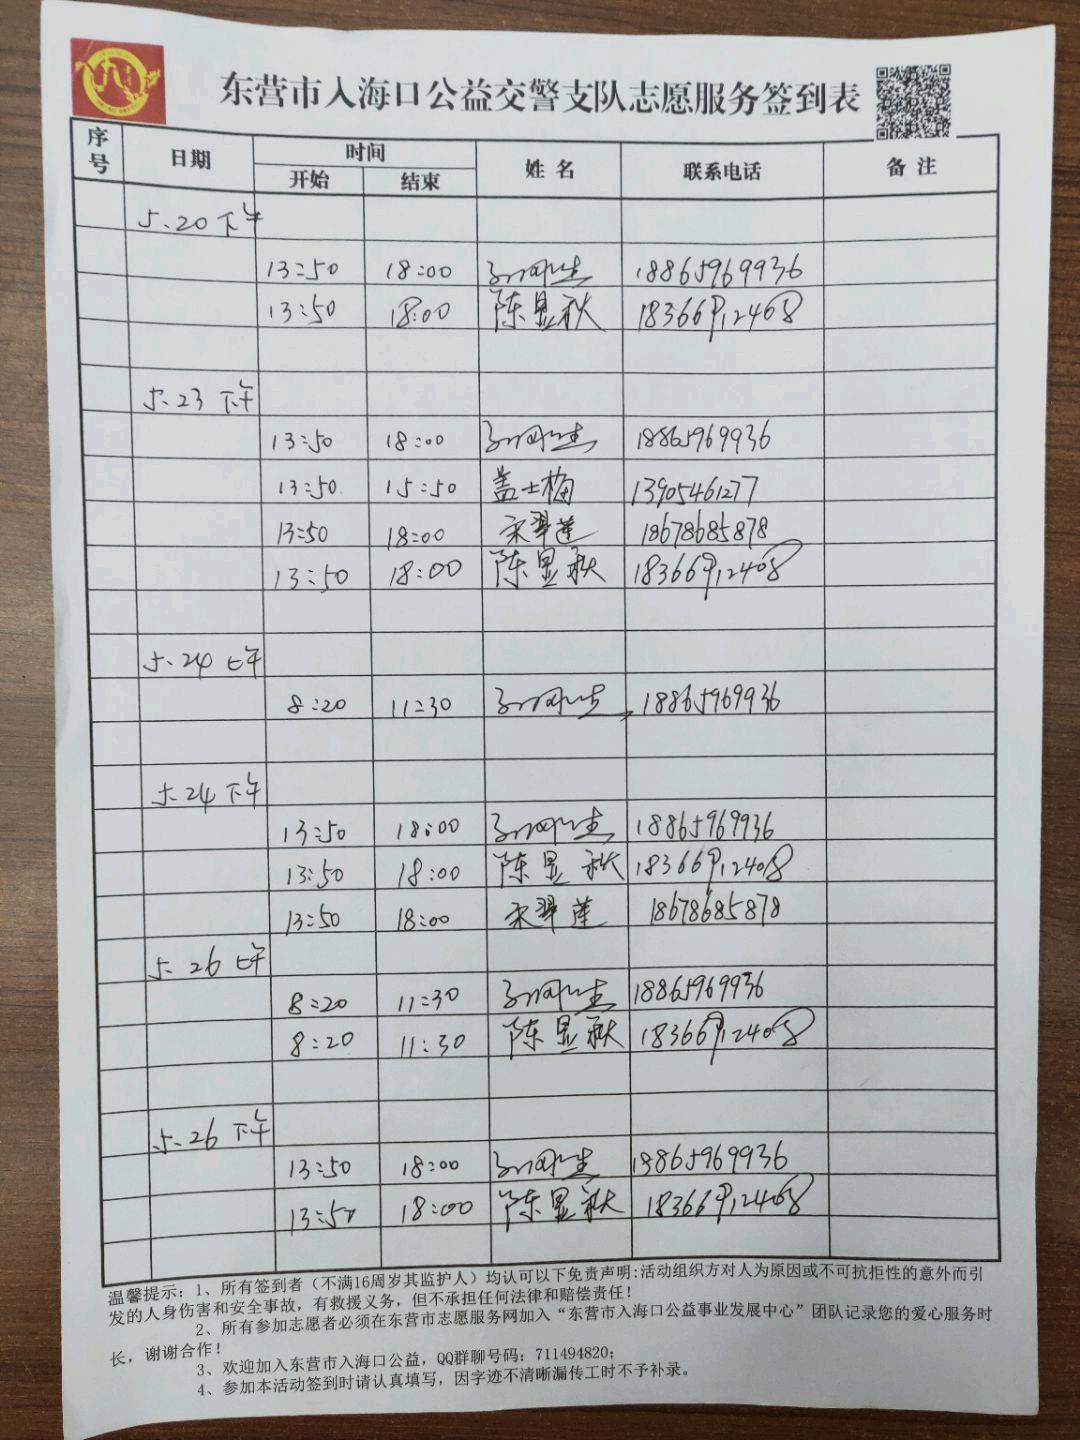 东营市入海口公益交警支队志愿服务签到表
序号 日期 时间 姓名 联系电话 备注
开始 结束
5.20下午
13:50 18:00 18865969936
13:50 18:00 陈显秋 18366912408
5.23下午
13:50 18:00 18865969936
13:50 15:50 盖士梅 13905461277
13:50 18:00 宋翠莲 18678685878
13:50 18:00 陈显秋 18366912408
5.24上午
8:20 11:30 18865969936
5.24下午
13:50 18:00 18865969936
13:50 18:00 陈显秋 18366912408
13:50 18:00 宋翠莲 18678685878
5.26上午
8:20 11:30 18865969936
8:20 11:30 陈显秋 18366912408
5.26下午
13:50 18:00 18865969936
13:50 18:00 陈显秋 18366912408
温馨提示:1、所有签到者(不满16周岁其监护人)均认可以下免责声明:活动组织方对人为原因或不可抗拒性的意外而引
发的人身伤害和安全事故,有救援义务,但不承担任何法律和赔偿责任!
2、所有参加志愿者必须在东营市志愿服务网加入“东营市入海口公益事业发展中心”团队记录您的爱心服务时
长,谢谢合作!
3、欢迎加入东营市入海口公益,QQ群聊号码:711494820;
4、参加本活动签到时请认真填写,因字迹不清晰漏传工时不予补录。